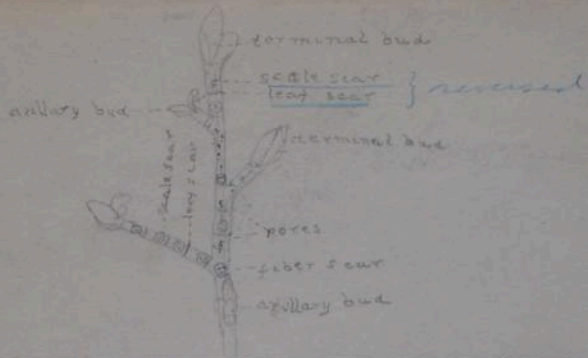 terminal bud
scale scar
leaf scar
reversed
axillary bud
terminal bud
scale scar
leaf scar
pores
fiber scar
axillary bud